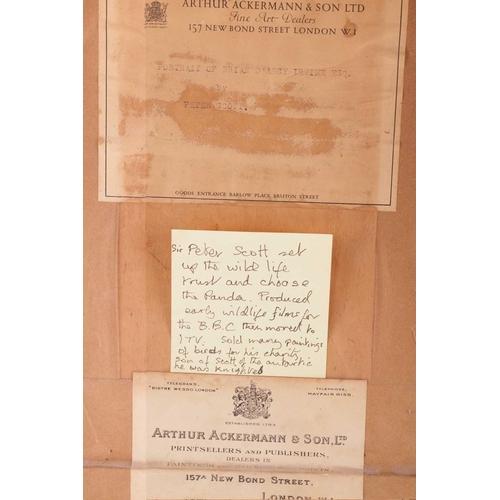 ARTHUR ACKERMANN & SON LTD
Fine Art Dealers
157 NEW BOND STREET LONDON W.1
PORTRAIT OF BRIAN ESQ.
BY
PETER SCOTT.
GOODS ENTRANCE BARLOW PLACE, BRUTON STREET
Sir Peter Scott set
up the wild life
trust and choose
the Panda. Produced
early wildlife films for
the B.B.C then moved to
ITV. Sold many paintings
of birds for his charity
son of Scott of the antartic
he was knighted
TELEGRAMS, TELEPHONE,
"BISTRE WESDO LONDON" MAYFAIR
ESTABLISHED 1783
ARTHUR ACKERMANN & SON, LTD
PRINTSELLERS AND PUBLISHERS,
DEALERS IN
157A NEW BOND STREET,
LONDON, W.1.